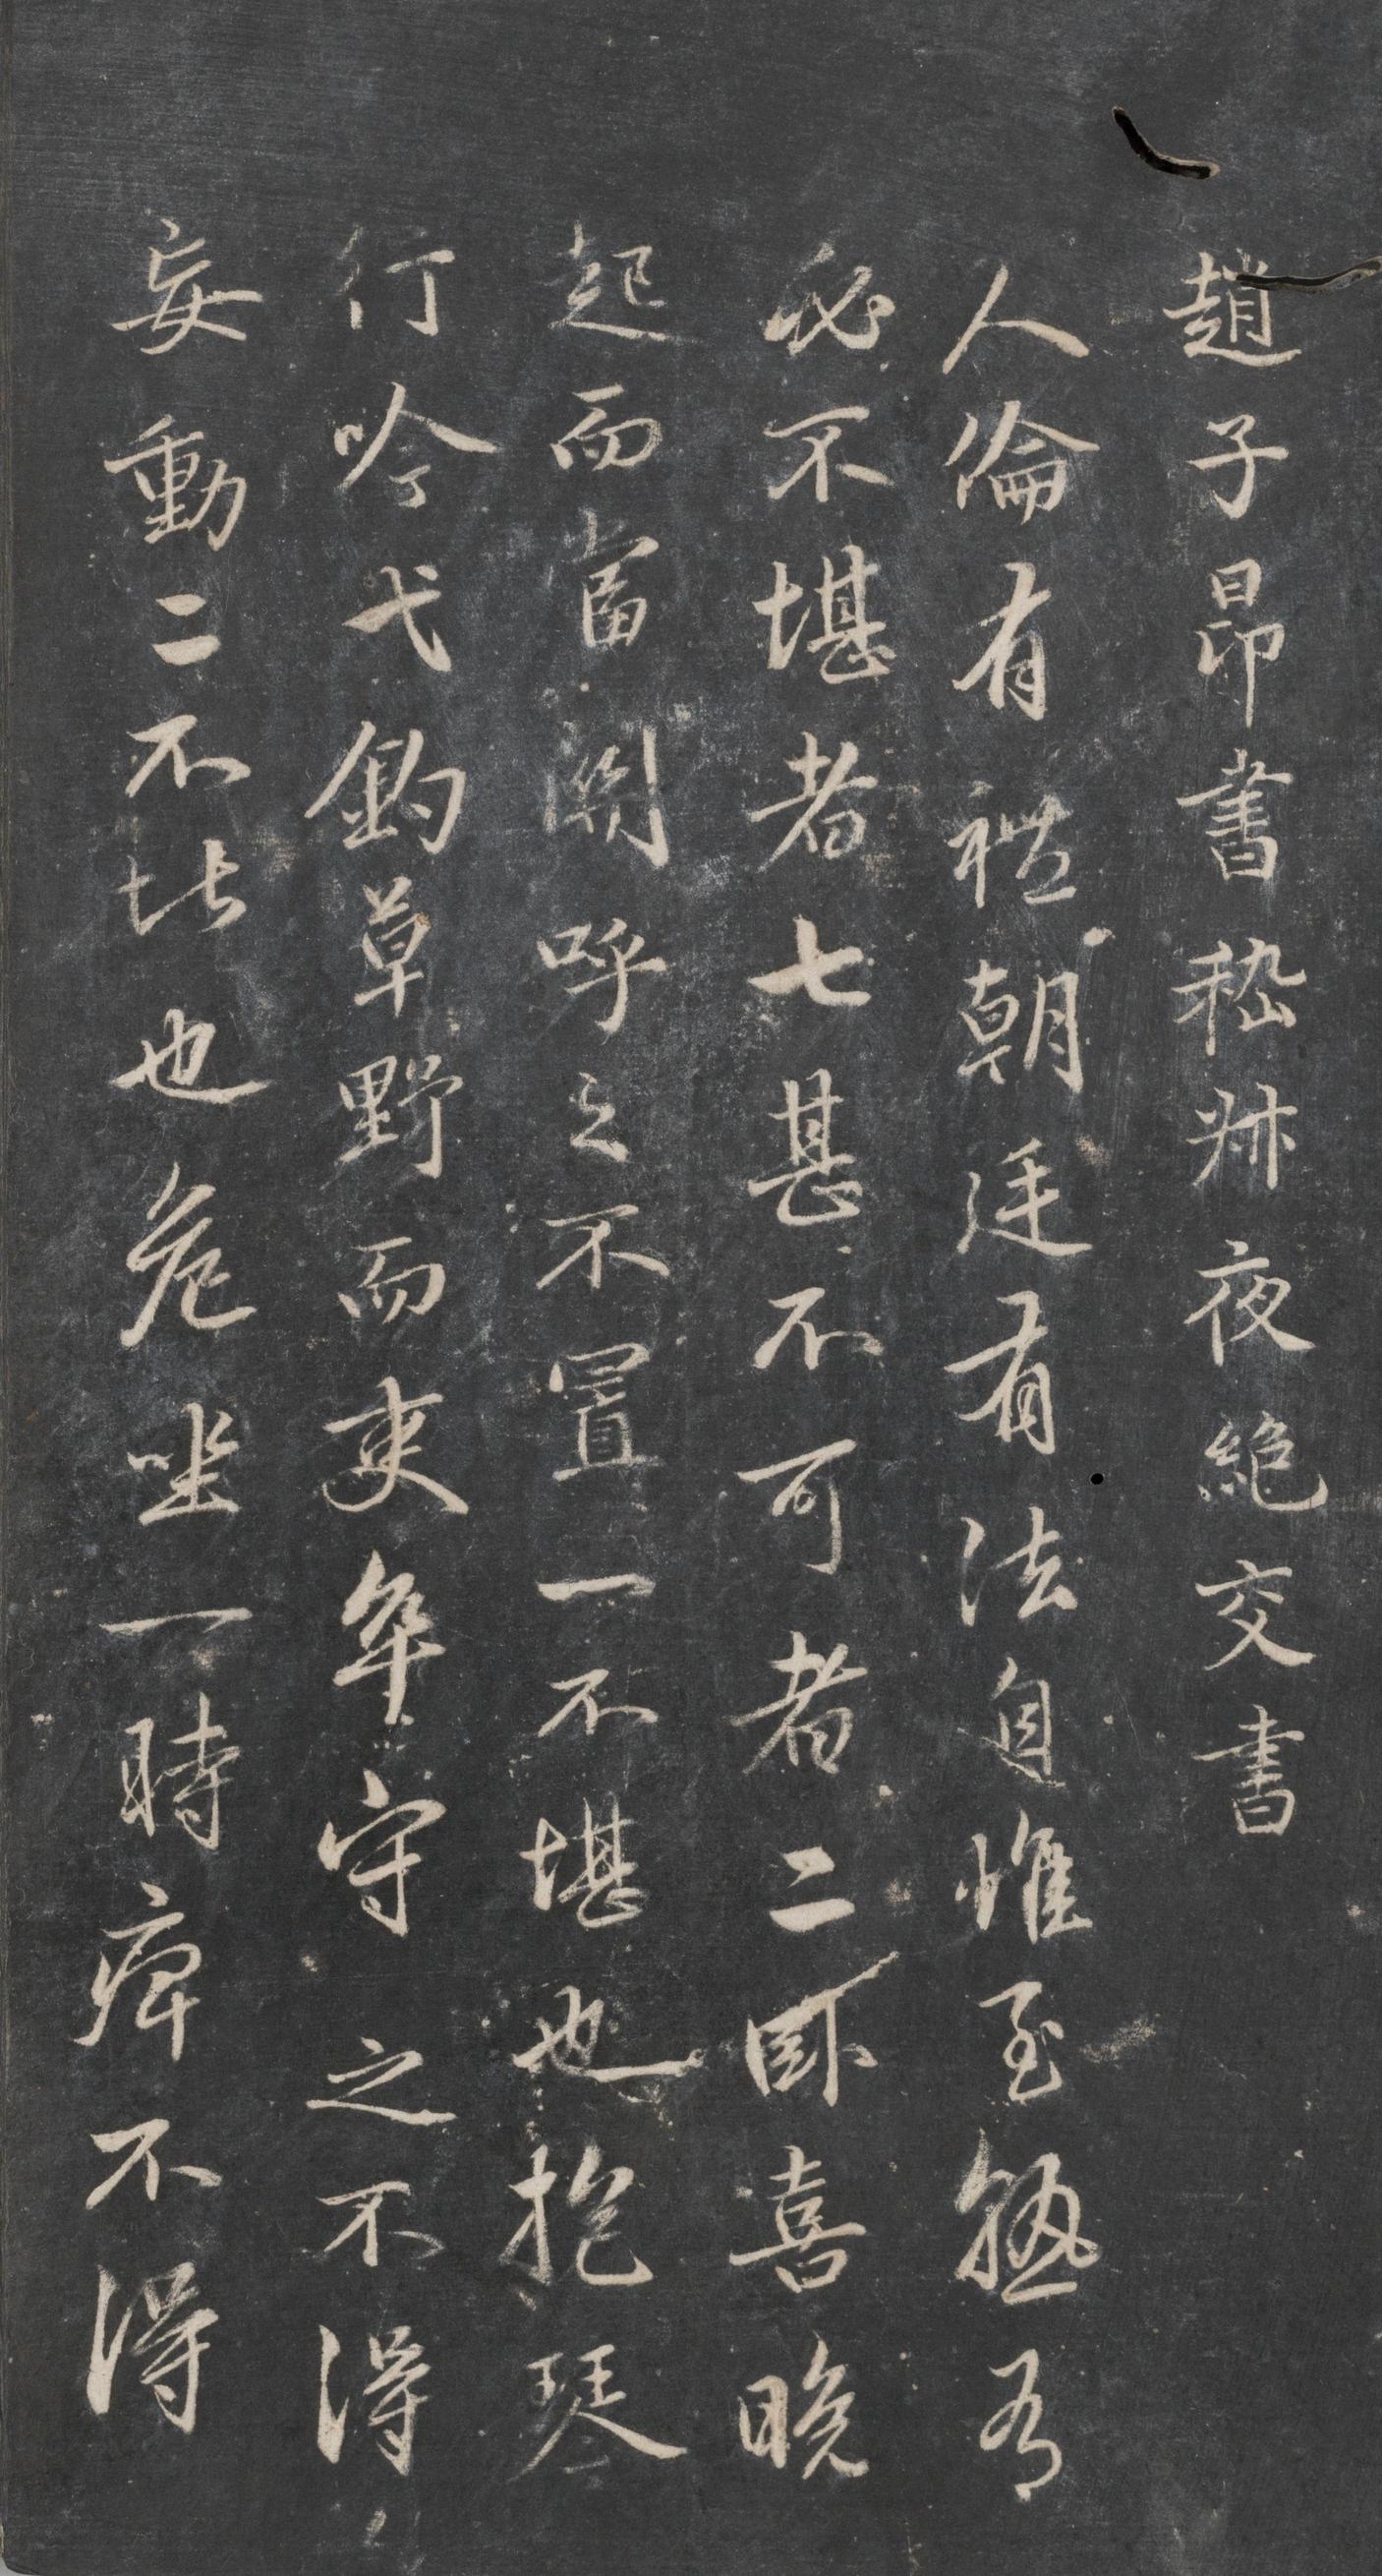 趙子昂書嵇叔夜絕交書
人倫有禮朝廷有法自惟至熟有
必不堪者七甚不可者二臥喜晚
起而當関呼之不置一不堪也抱琴
行吟弋釣草野而吏卒守之不得
妄動二不堪也危坐一時痺不得